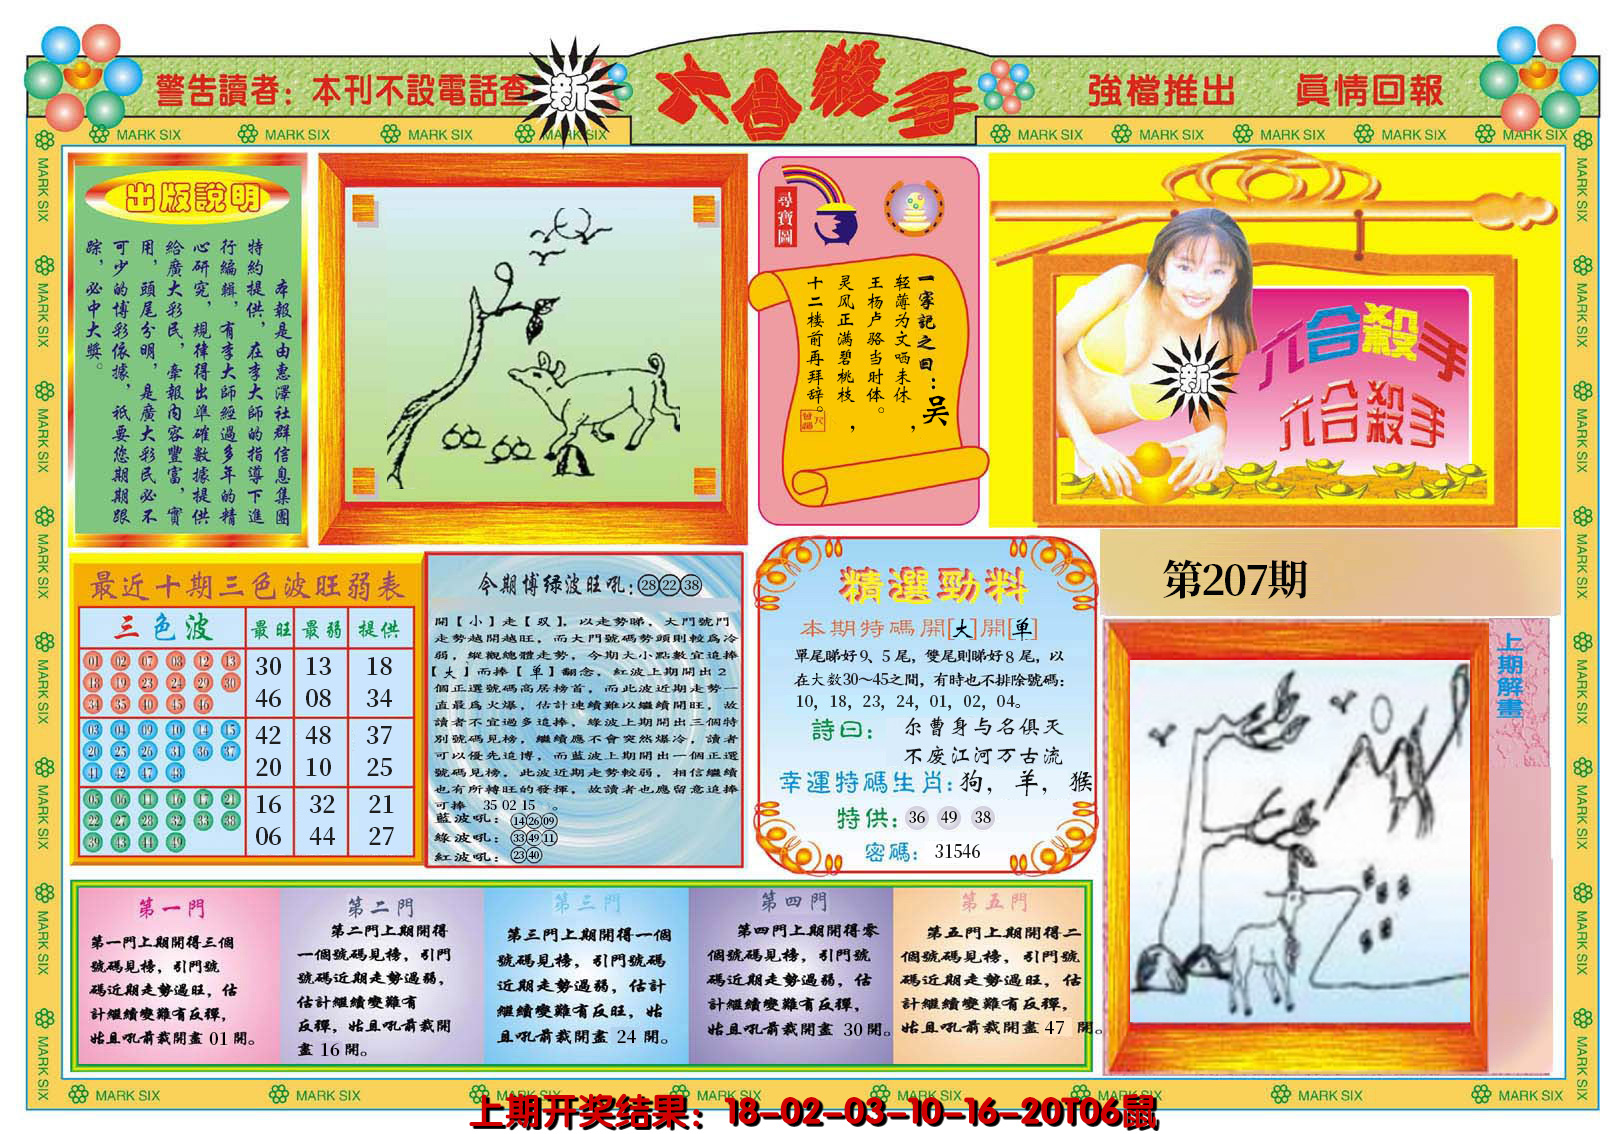 警告讀者：本刊不設電話查
新
六合殺手
強檔推出 眞情回報
MARK SIX
出版說明
本報是由惠澤社群信息集團
特約提供，在李大師的指導下進
行編輯，有李大師經過多年的精
心研究，規律得出準確數據提供
給廣大彩民，牽報內容豐富，實
用，頭尾分明，是廣大彩民必不
可少的博彩依據，祇要您期期跟
踪，必中大獎。
尋寶圖
一家記之曰：吴
轻薄为文哂未休，
王杨卢骆当时体。
灵风正满碧桃枝，
十二楼前再拜辞。
六合殺手
六合殺手
新
第207期
上期解畫
最近十期三色波旺弱表
三色波 最旺 最弱 提供
01 02 07 08 12 13
18 19 23 24 29 30
34 35 40 45 46
30 13 18
46 08 34
03 04 09 10 14 15
20 25 26 31 36 37
41 42 47 48
42 48 37
20 10 25
05 06 11 16 17 21
22 27 28 32 33 38
39 43 44 49
16 32 21
06 44 27
今期博绿波旺吼：28 22 38
開【小】走【双】，以走勢睇，大門號門
走勢越開越旺，而大門號碼勢頭則較爲冷
弱，縱觀總體走勢，今期大小點數宜追捧
【大】而捧【单】翻念，紅波上期開出2
個正選號碼高居榜首，而此波近期走勢一
直最爲火爆，估計連續難以繼續開旺，故
讀者不宜過多追捧，綠波上期開出三個特
別號碼見榜，繼續應不會突然爆冷，讀者
可以優先追博，而藍波上期開出一個正選
號碼見榜，此波近期走勢較弱，相信繼續
也有所轉旺的發揮，故讀者也應留意追捧
可捧 35 02 15 。
藍波吼：14 26 09
綠波吼：33 49 11
紅波吼：23 40
精選勁料
本期特碼開[大]開[单]
單尾睇好9、5尾，雙尾則睇好8尾，以
在大数30～45之間，有時也不排除號碼：
10，18，23，24，01，02，04。
詩曰： 尔曹身与名俱灭
不废江河万古流
幸運特碼生肖：狗，羊，猴
特供：36 49 38
密碼：31546
第一門
第一門上期開得三個
號碼見榜，引門號
碼近期走勢過旺，估
計繼續變難有反彈，
姑且吼前截開盡 01 開。
第二門
第二門上期開得
一個號碼見榜，引門
號碼近期走勢過弱，
估計繼續變難有
反彈，姑且吼前截開
盡 16 開。
第三門
第三門上期開得一個
號碼見榜，引門號碼
近期走勢過弱，估計
繼續變難有反旺，姑
且吼前截開盡 24 開。
第四門
第四門上期開得零
個號碼見榜，引門號
碼近期走勢過弱，估
計繼續變難有反彈，
姑且吼前截開盡 30 開。
第五門
第五門上期開得二
個號碼見榜，引門號
碼近期走勢過旺，估
計繼續變難有反彈，
姑且吼前截開盡 47 開。
上期开奖结果：18-02-03-10-16-20T06鼠